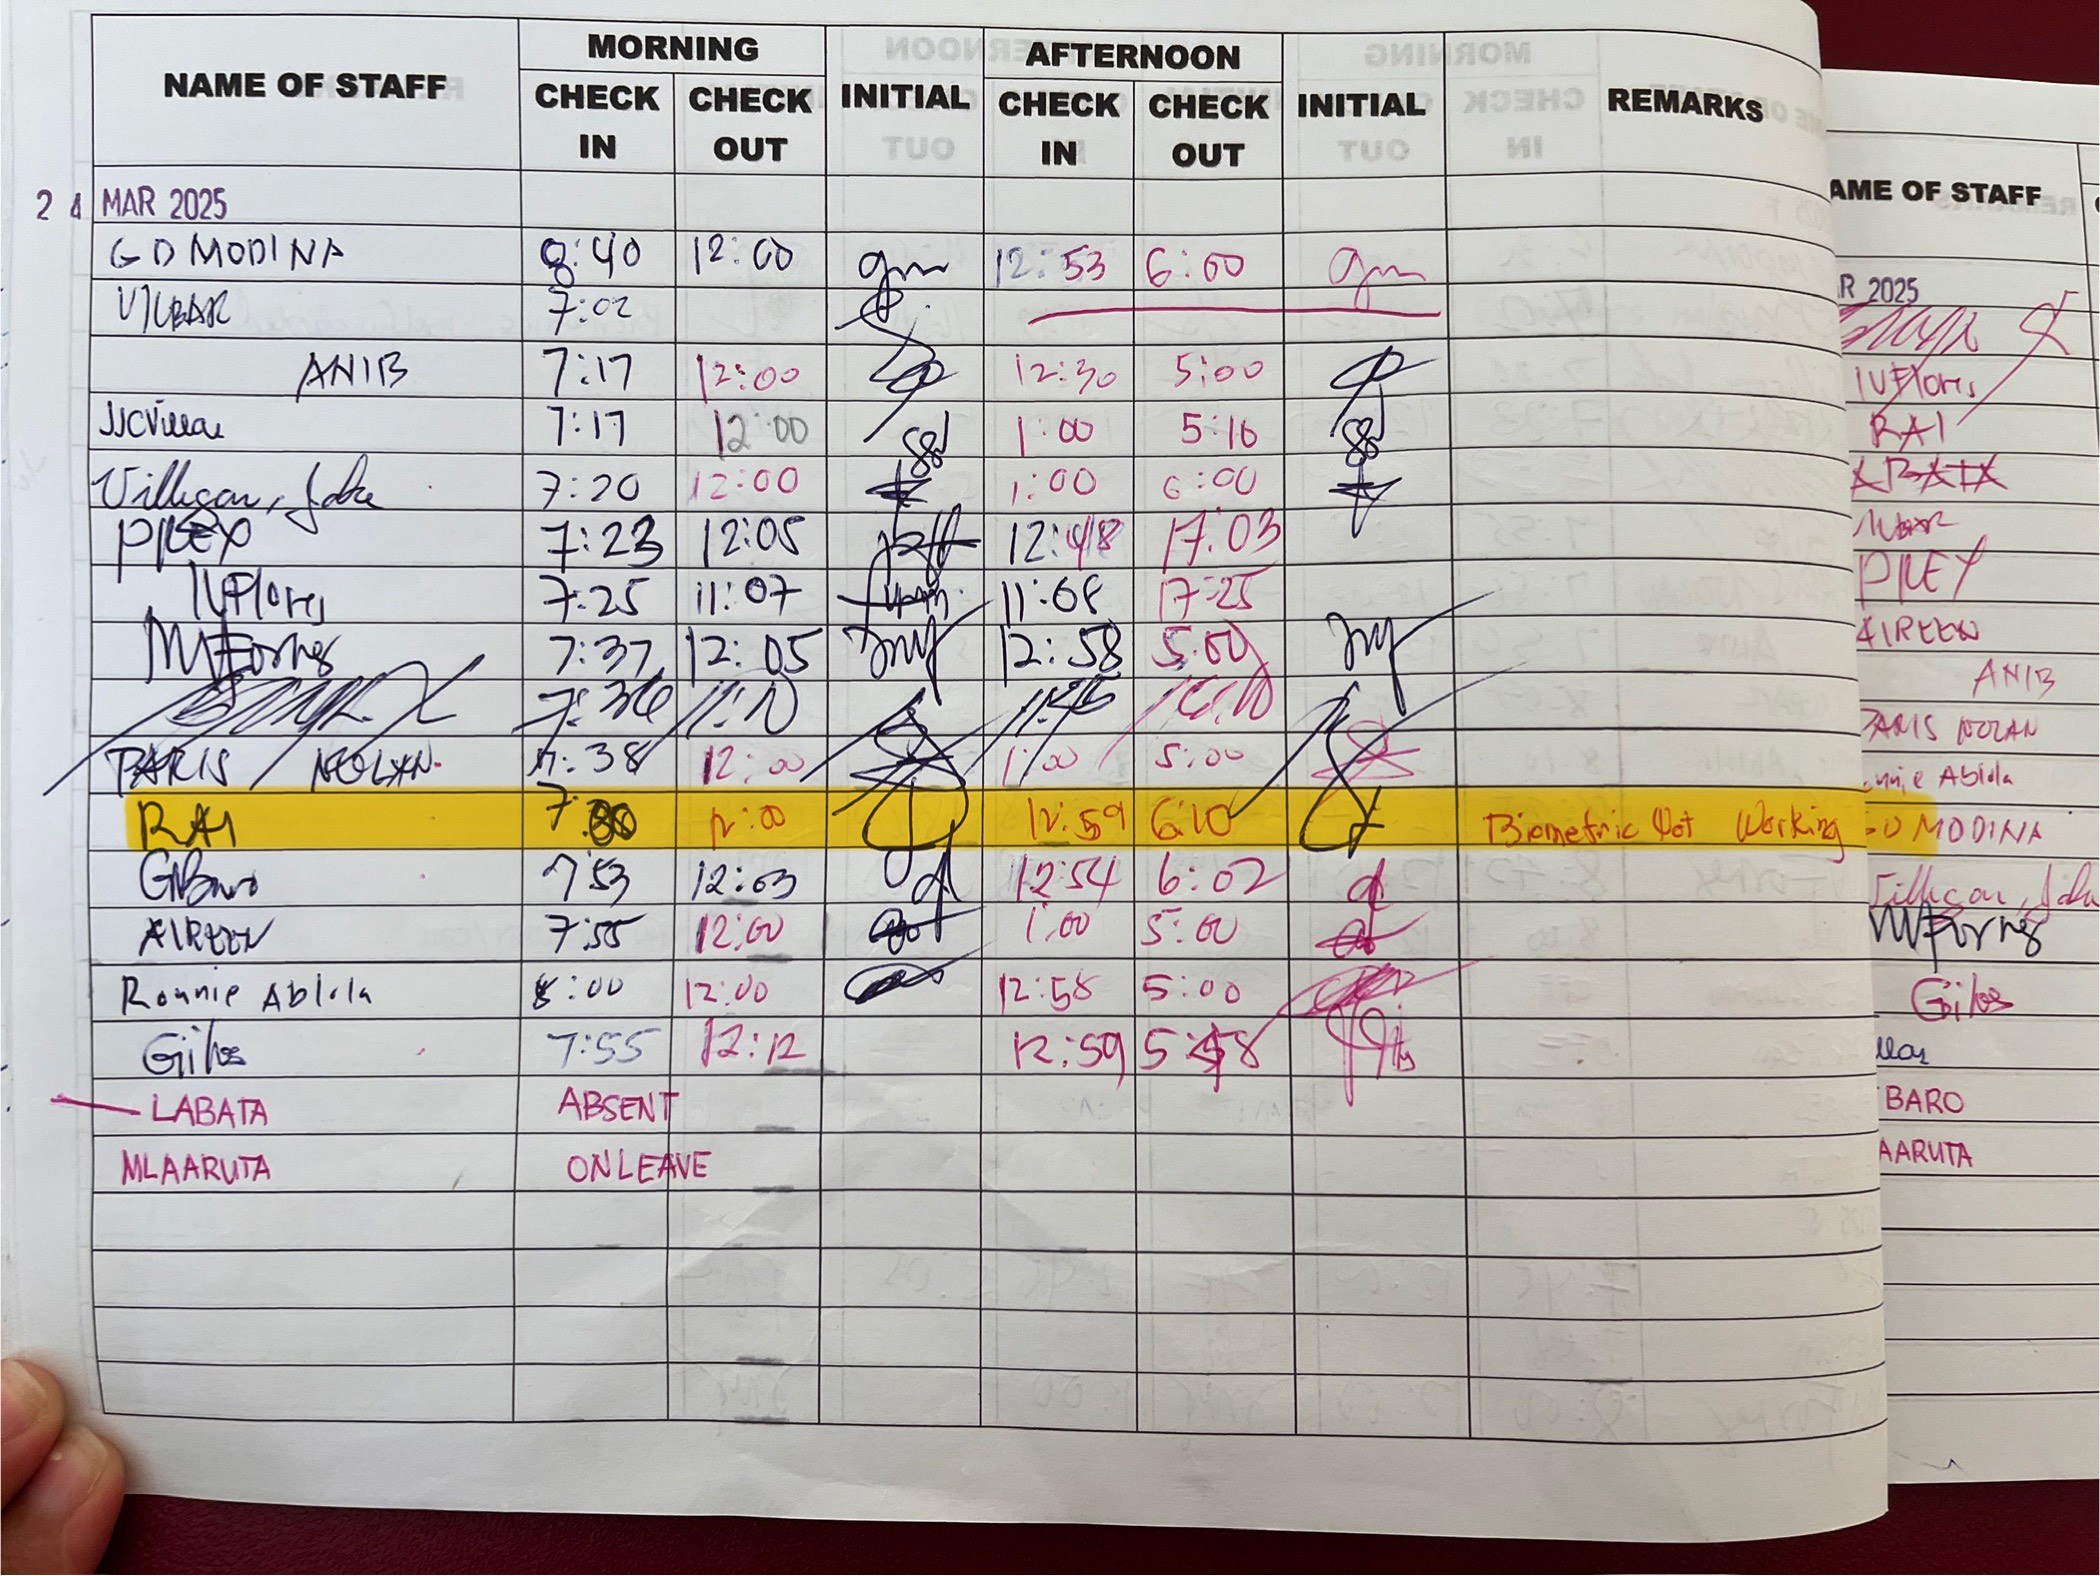 NAME OF STAFF MORNING INITIAL AFTERNOON INITIAL REMARKS
CHECK IN CHECK OUT CHECK IN CHECK OUT
24 MAR 2025
GD MODINA 8:40 12:00 gm 12:53 6:00 gm
VILBAR 7:02
ANIB 7:17 12:00 12:30 5:00
JJCVillar 7:17 12:00 1:00 5:10
Villegan, Jake 7:20 12:00 1:00 6:00
PREY 7:23 12:05 12:48 17:03
IVFlores 7:25 11:07 11:08 17:25
MFornes 7:37 12:05 12:58 5:00
7:36 11:10 11:46
PARIS NOLAN 7:38 12:00 1:00 5:00
RAI 7: 12:00 12:59 6:10 Biometric Not Working
GBaro 7:53 12:03 12:54 6:02
AIREEN 7:55 12:00 1:00 5:00
Ronnie Ablola 8:00 12:00 12:58 5:00
Gilos 7:55 12:12 12:59 5:58
LABATA ABSENT
MLAARUTA ON LEAVE
AME OF STAFF
R 2025
IVFlores
RAI
ABATA
PREY
AIREEN
ANIB
PARIS NOLAN
nnie Ablola
GD MODINA
Villegan, Jake
MFornes
Gilos
llar
BARO
AARUTA